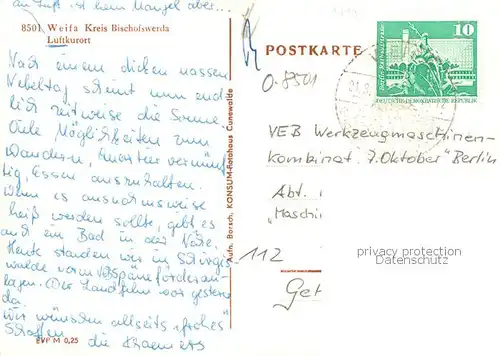 an Luft ist kein Mangel aber...
8501 Weifa Kreis Bischofswerda
Luftkurort
Nach einem dicken nassen
Nebeltag scheint nun end-
lich zeitweise die Sonne.
Viele Möglichkeiten zum
Wandern, Quartier vernünf-
tig, Essen auszuhalten.
Wenn es ausnahmsweise
heiß werden sollte, gibt es
auch ein Bad in der Nähe.
Heute standen wir in
walde vorm Späneförderan-
lagen. Der Landfilm war gestern
da.
Wir wünschen allseits frohes
Schaffen die
EVP M 0,25
Aufn. Borsch, KONSUM-Fotohaus Cunewalde
POSTKARTE
10
DEUTSCHE DEMOKRATISCHE REPUBLIK
0-8501
VEB Werkzeugmaschinen-
kombinat "7. Oktober" Berlin
Abt.
"Maschi
112
privacy protection
Datenschutz
Get